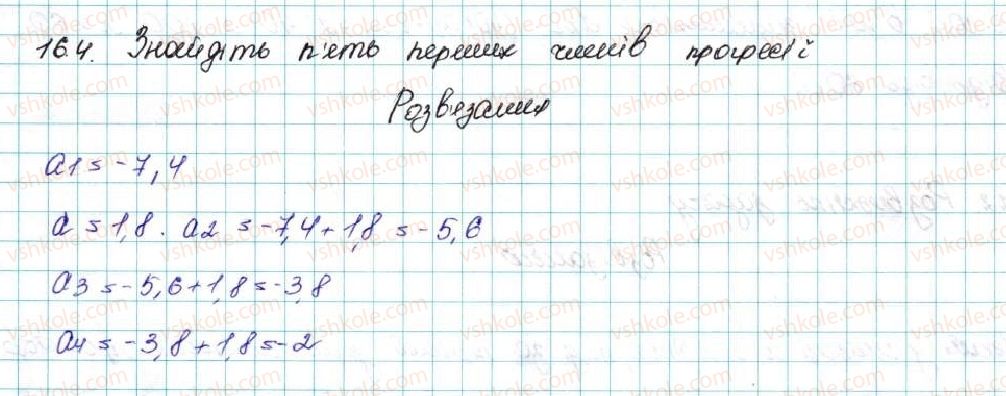 16.4. Знайдіть п'ять перших членів прогресії
Розв'язання
a1 = -7,4
d = 1,8. a2 = -7,4 + 1,8 = -5,6
a3 = -5,6 + 1,8 = -3,8
a4 = -3,8 + 1,8 = -2